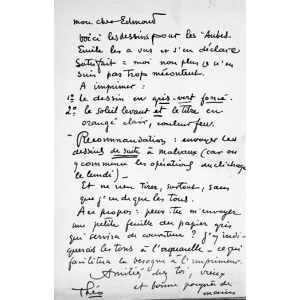 mon cher Edmond
Voici les dessins pour les "Aubes.
Emile les a vus et s'en déclare
satisfait = moi non plus je n'en
suis pas trop mécontent.
A imprimer :
1º le dessin en gris-vert foncé.
2º le soleil levant et le titre en
orangé clair, couleur feu.
- Recommandation : envoyer les
dessins de suite à malvaux (car on
y commence les opérations du clichage
le lundi) -
Et ne rien tirer, surtout, sans
que j'indique les tons.
A ce propos : peux-tu m'envoyer
une petite feuille du papier gris
qui servira de couverture ? j'y indi-
querais les tons à l'aquarelle - ce qui
facilitera la besogne à l'imprimeur.
Amitiés chez toi, vieux
et bonne poignée de
mains
Théo